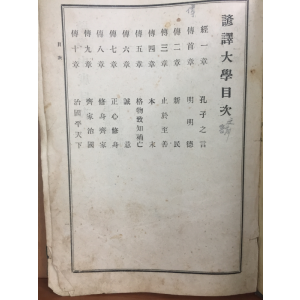 諺譯大學目次
經一章 孔子之言
傳首章 明明德
傳二章 新民
傳三章 止於至善
傳四章 本末
傳五章 格物致知補亡
傳六章 誠意
傳七章 正心修身
傳八章 修身齊家
傳九章 齊家治國
傳十章 治國平天下
目次